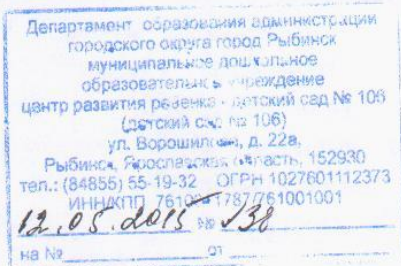 Департамент образования администрации
городского округа город Рыбинск
муниципальное дошкольное
образовательное учреждение
центр развития ребенка - детский сад № 106
(детский сад № 106)
ул. Ворошилова, д. 22а,
Рыбинск, Ярославская область, 152930
тел.: (84855) 55-19-32 ОГРН 1027601112373
ИНН/КПП /761001001
12.05.2015 № 138
на № от